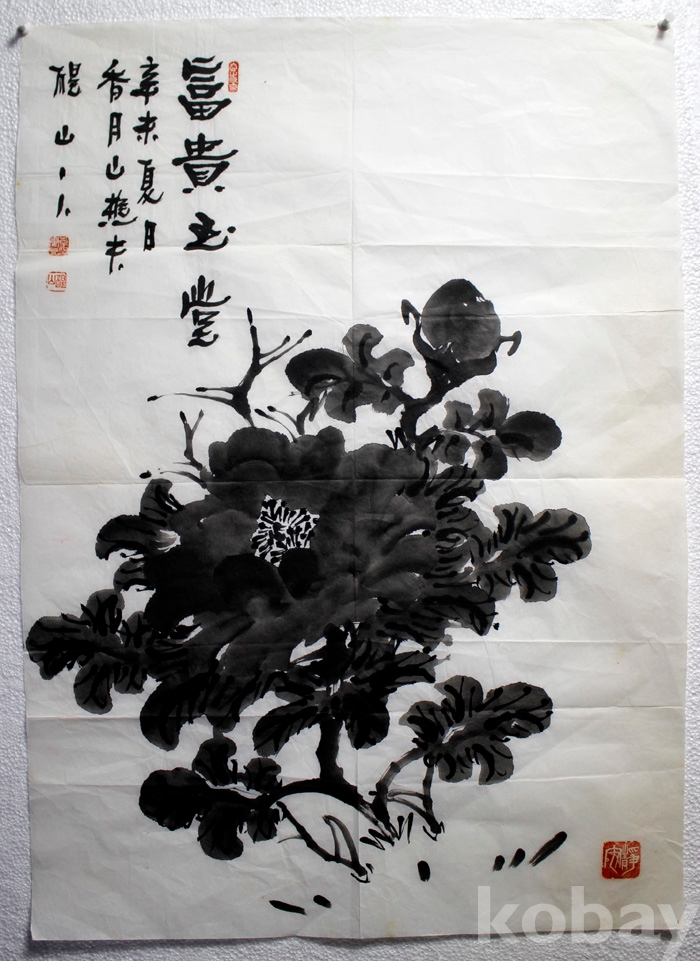 富貴玉堂
辛未夏日
香月山樵夫
山人
kobay